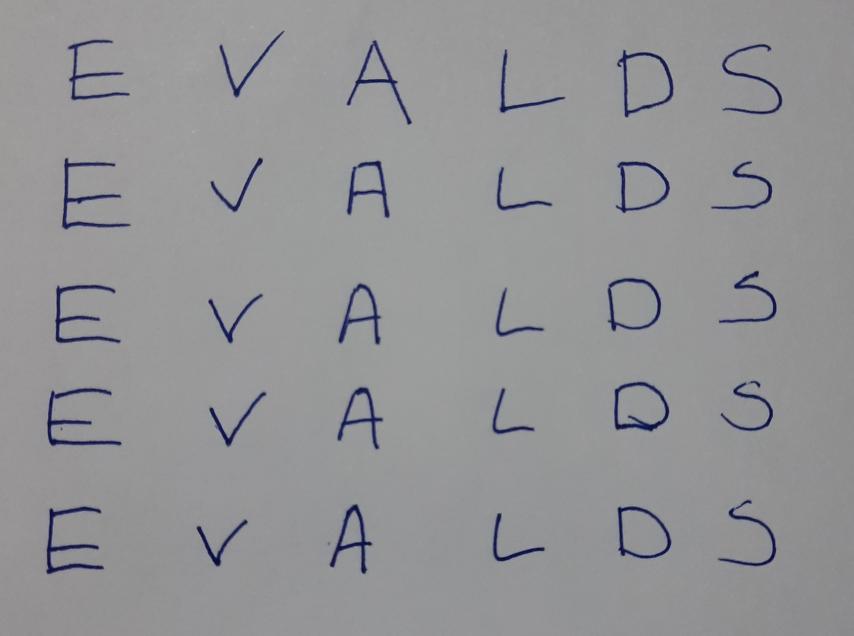 E V A L D S
E V A L D S
E V A L D S
E V A L D S
E V A L D S